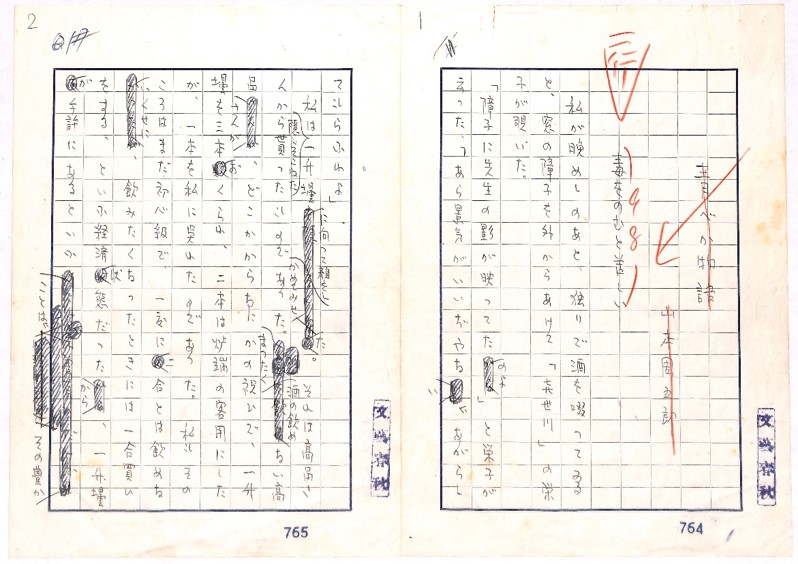 1
青べか物語
山本周五郎
毒をのむと苦しい
私が晩めしのあと、独りで酒を啜ってゐる
と、窓の障子を外からあけて「喜世川」の栄
子が覗いた。
「障子に先生の影が映ってた
のよ
」と栄子が
云った、「あら景気がいいぢやち
い
、あがらし
764
文藝春秋
2
てもらふわよ」
私は一升壜
に向って
た。それは高品い
んから貰ったものであった。
ない高
品
さんが
、どこかからなにかの祝ひで、一升
壜を三本
お
くられ、二本は炉端の客用にした
が、一本を私に呉れたのであった。私もその
ころはまだ初心級で、一刻に
二
合とは飲めな
いくせに
、飲みたくなったときには一合買ひ
をする、といふ経済
状
態だった
から
、一升壜
が
手許にあるといふ
ことは、
その豊か
酒の飲め
まったく
765
文藝春秋